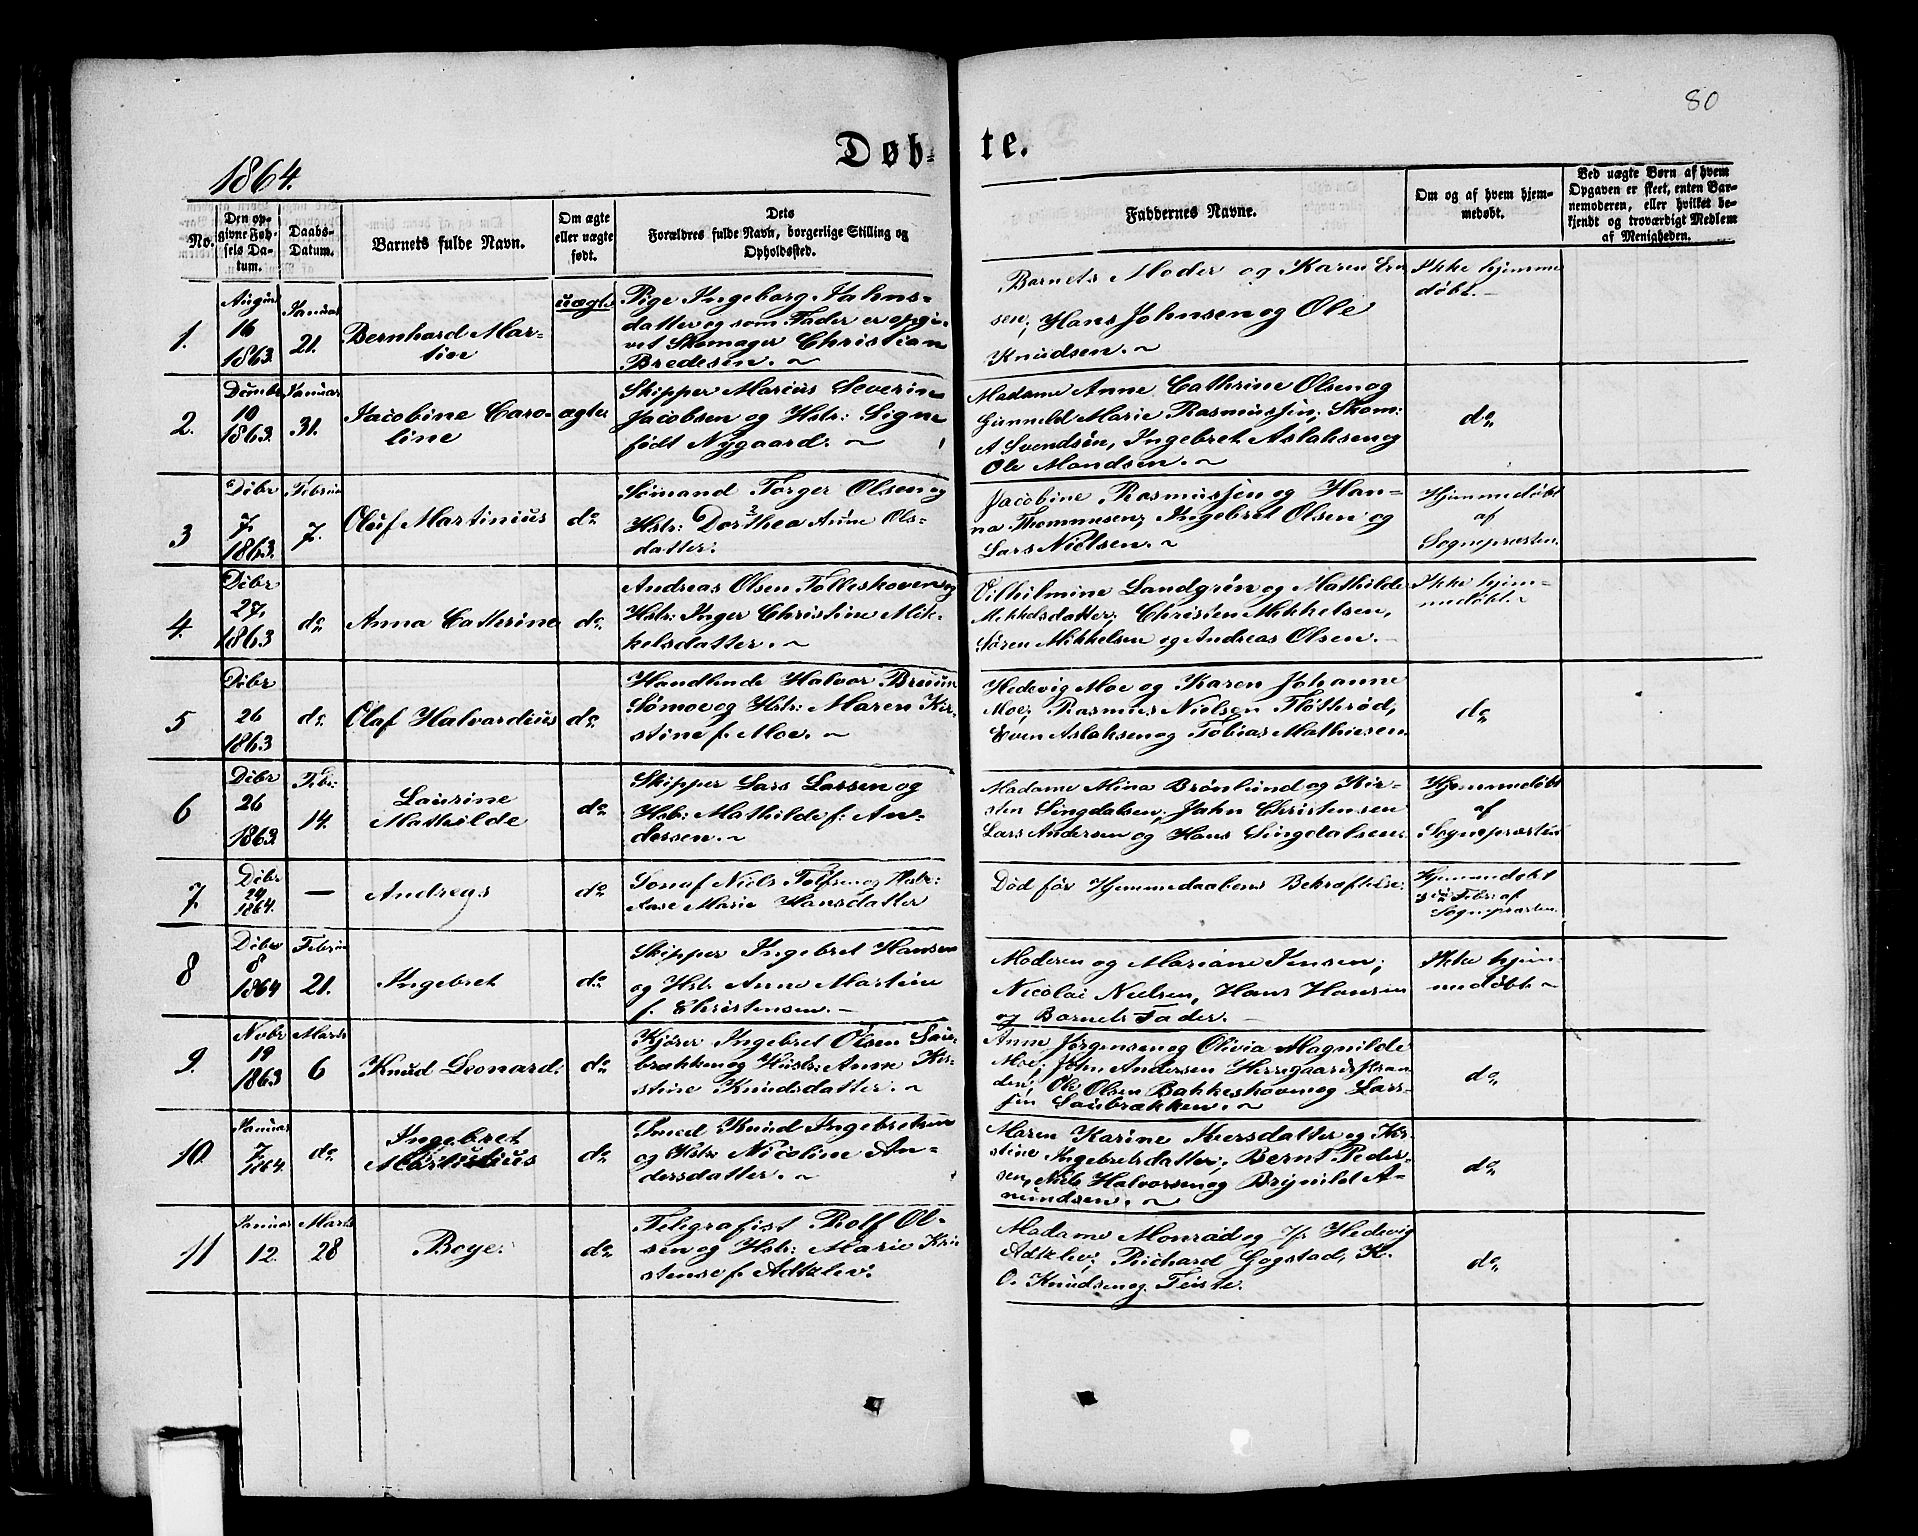 80
Døb-te.
1864.
No.
Den op-
givne Føд-
sels Da-
tum.
Daabs-
Datum.
Barnets fulde Navn.
Om ægte
eller uægte
født.
Dets
Forældres fulde Navn, borgerlige Stilling og
Opholdssted.
Faddernes Navne.
Om og af hvem hjem-
medøbt.
Ved uægte Børn af hvem
Opgaven er skeet, enten Bar-
nemoderen, eller hvilket be-
kjendt og troværdigt Medlem
af Menigheden.
1.
August
16
1863.
Januar
21.
Bernhard Mar-
tin
uægte
Pige Ingeborg Jahns-
datter og som Fader er opgi-
vet Skomager Christian
Bredesen. ~
Barnets Moder og Karen
sen; Hans Johnsen og Ole
Knudsen. ~
Ikke hjemme
døbt. -
2.
19
1863.
Januar
31.
Jacobine Caro-
line
ægte
Skipper Marius Severin
Jacobsen og Hstr: Signe
født Nygaard. ~
Madame Anne Cathrine Olsen og
Gunneld Marie Rasmussen; Skom:
A Svendsen, Ingebret Aslaksen og
Ole Mandsen. ~
do
3
Dcbr
7.
1863.
Februar
7.
Oluf Martinius
do
Sømand Torger Olsen og
Hstr: Dorthea Anne Ols-
datter.
Jacobine Rasmussen og Han-
na Thommesen; Ingebret Olsen og
Lars Nielsen. ~
Hjemmedøbt
af
Sognepræsten.
4.
Dcbr
27.
1863
do
Anna Cathrine
do
Andreas Olsen Folkeskoven og
Hstr: Inger Christine Mik-
kelsdatter. ~
Vilhelmine Landgrén og Mathilde
Mikkelsdatter; Christen Mikkelsen,
Søren Mikkelsen og Andreas Olsen.
Ikke hjem-
medøbt. ~
5
Dcbr
26
1863
do
Olaf Halvardius
do
Handlende Halvor Bruun
Sømoe og Hstr: Maren Kir-
stine f. Moe. ~
Hedevig Moe og Karen Johanne
Moe; Rasmus Nielsen Fløtterød,
Even Aslaksen og Tobias Mathiesen
do
6
Dcbr
26
1863
Febr:
14.
Laurine
Mathilde
do
Skipper Lars Larsen og
Hstr: Mathilde f: An-
dersen. ~
Madame Mina Brønlund og Kir-
sten Lingdalsen; Jahn Christensen
Lars Andersen og Hans Lingdalsen.
Hjemmedøbt
af
Sognepræsten
7.
Dcbr
24
1864.
-
Andreas
do
Niels Tolfsen og Hstr:
Aase Marie Hansdatter
Død før Hjemmedaabens Bekræftelse.
Hjemmedøbt
Febr: af
Sognepræsten.
8
Dcbr
8
1864
Februar
21.
Ingebret
do
Skipper Ingebret Hansen
og Hstr: Anne Martine
f. Christensen. -
Moderen og Mariane Jensen;
Nicolai Nielsen, Hans Hansen
og Barnets Fader. -
Ikke hjem
medøbt ~
9.
Novbr
19
1863
Marts
6
Knud Leonard.
do
Ingebret Olsen Sau-
brækken og Hustr: Anne Kir-
stine Knudsdatter. ~
Anne Jørgensen og Olivia Magnilde
Moe; John Andersen Herregaardsstran-
den; Ole Olsen Bakkeskoven og Lars-
sen Saubrækken. ~
do
10.
Januar
7.
1864.
do
Ingebret
Martinius
do
Smed Knud Ingebretsen
og Hstr: Nicoline An-
dersdatter. ~
Maren Karine Iversdatter og Kir-
stine Ingebretsdatter; Bernt Peder-
sen, Niels Halvorsen og Brynild A-
mundsen. ~
do
11
Januar
12.
Marts
28
Boye.
do
Telegrafist Rolf Ol-
sen og Hstr: Marie Kri
stense f. Adtzlev.
Madame Monrad og Jfr Hedevig
Adtzlev; Richard Gogstad, K.
O. Knudsen og Feiste.
do